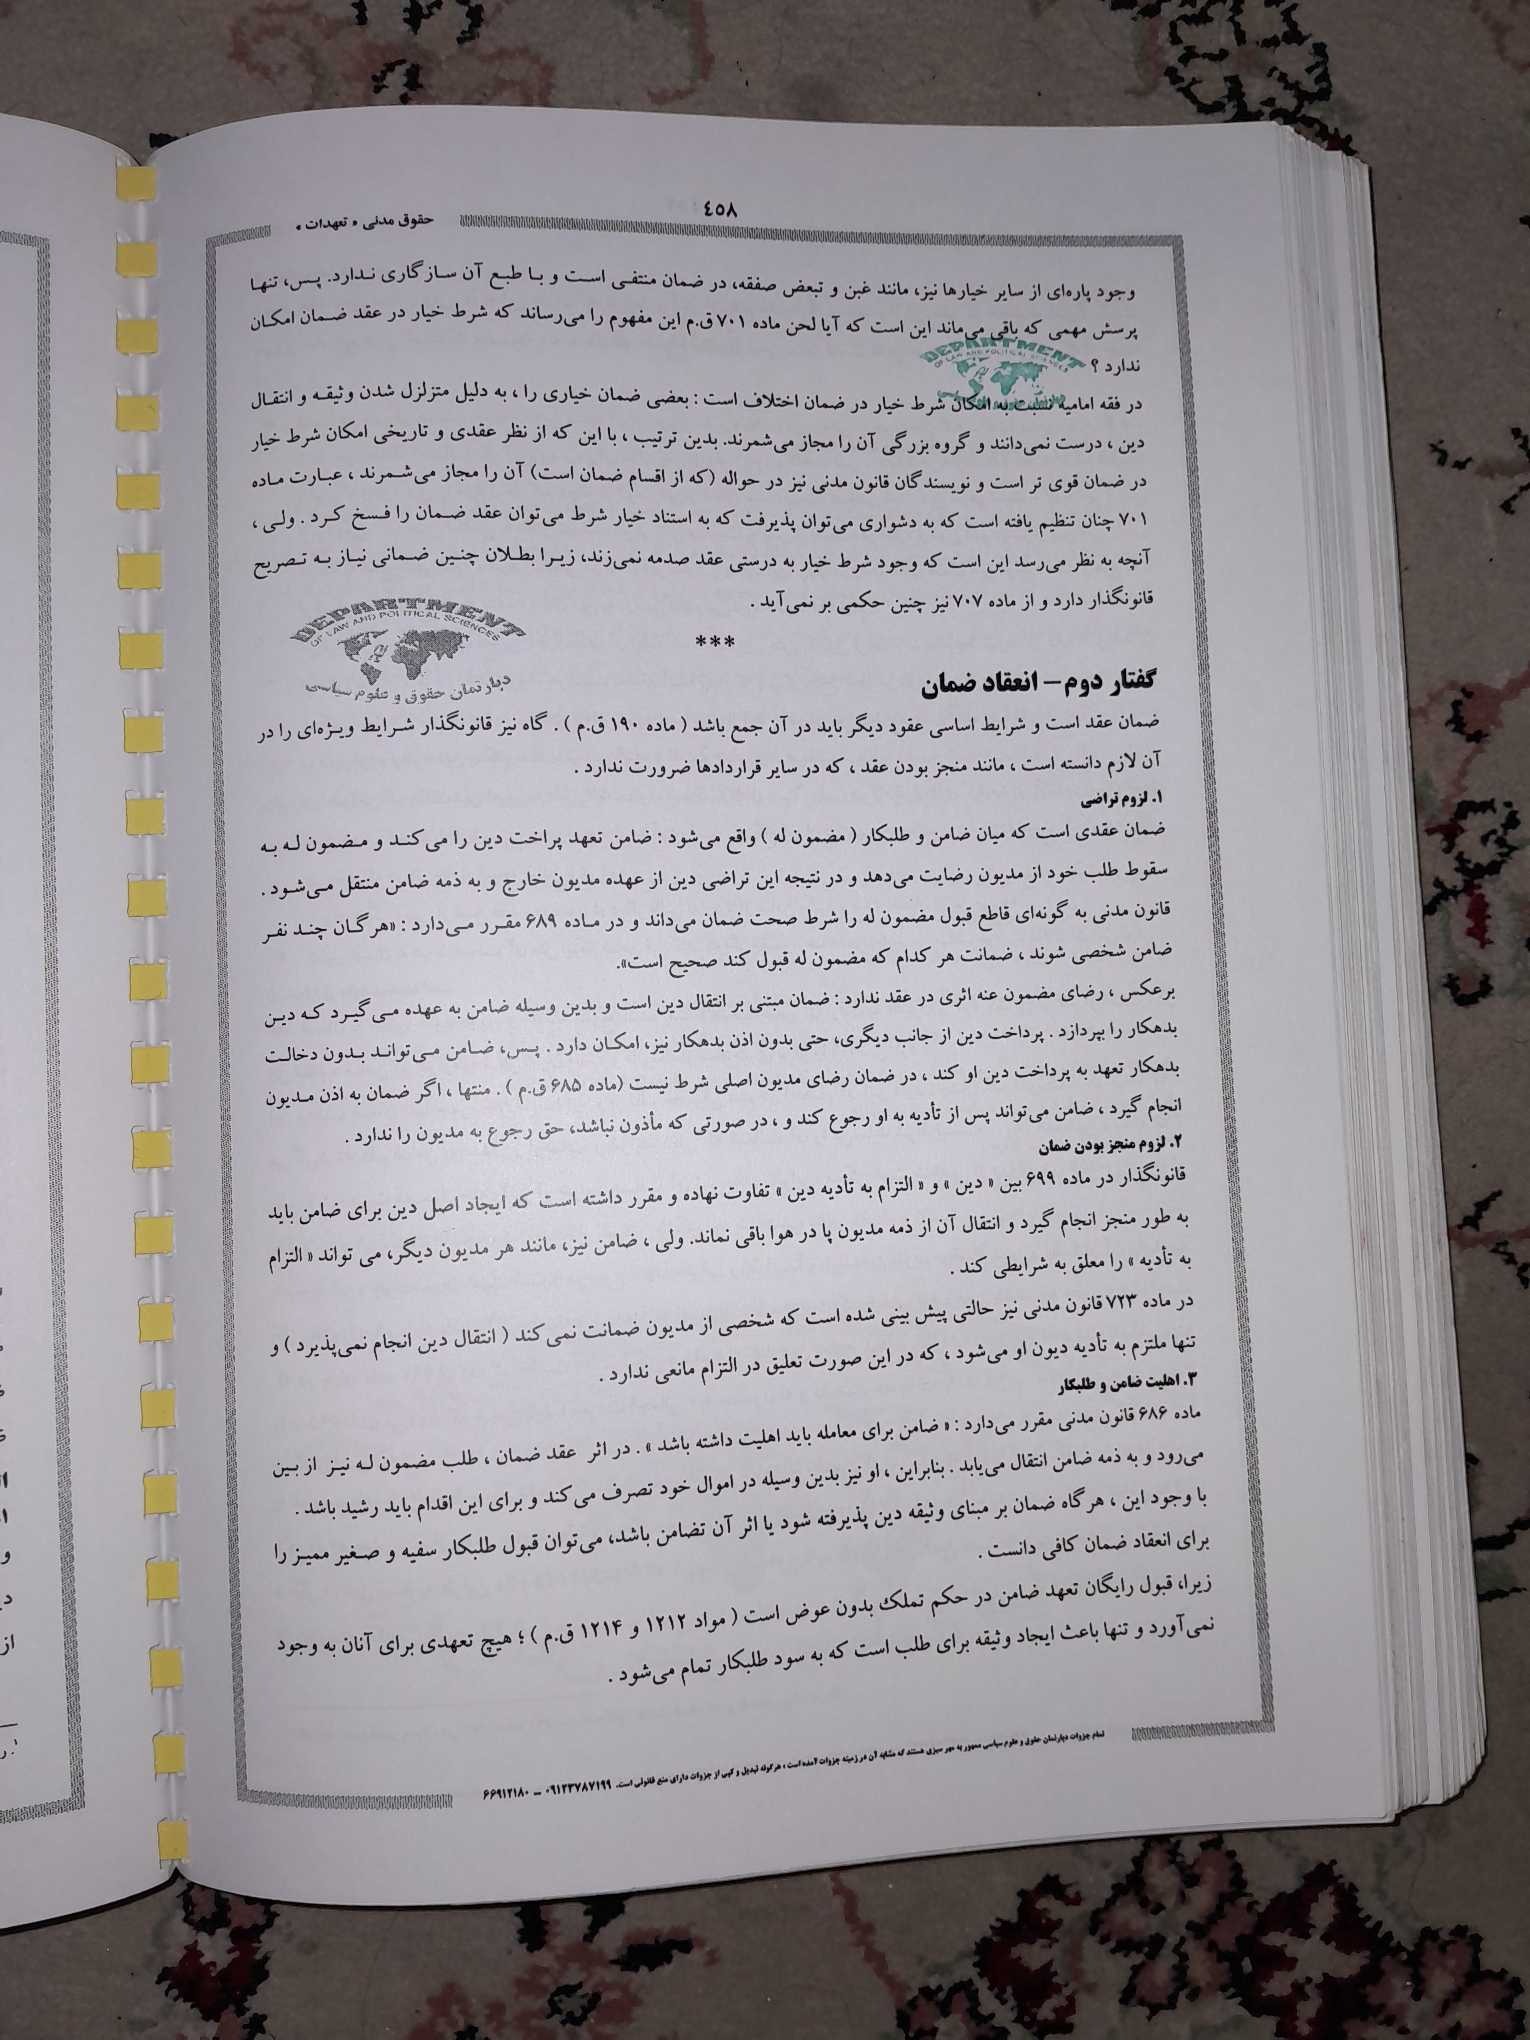 ٤٥٨
حقوق مدنی * تعهدات *
وجود پاره‌ای از سایر خیارها نیز، مانند غبن و تبعض صفقه، در ضمان منتفی است و با طبع آن سازگاری ندارد. پس، تنها
پرسش مهمی که باقی می‌ماند این است که آیا لحن ماده ۷۰۱ ق.م این مفهوم را می‌رساند که شرط خیار در عقد ضمان امکان
ندارد ؟
DEPARTMENT
OF LAW AND POLITICAL SCIENCES
در فقه امامیه نسبت به امکان شرط خیار در ضمان اختلاف است : بعضی ضمان خیاری را ، به دلیل متزلزل شدن وثیقه و انتقال
دین ، درست نمی‌دانند و گروه بزرگی آن را مجاز می‌شمرند. بدین ترتیب ، با این که از نظر عقدی و تاریخی امکان شرط خیار
در ضمان قوی تر است و نویسندگان قانون مدنی نیز در حواله (که از اقسام ضمان است) آن را مجاز می‌شمرند ، عبارت ماده
۷۰۱ چنان تنظیم یافته است که به دشواری می‌توان پذیرفت که به استناد خیار شرط می‌توان عقد ضمان را فسخ کرد . ولی ،
آنچه به نظر می‌رسد این است که وجود شرط خیار به درستی عقد صدمه نمی‌زند، زیرا بطلان چنین ضمانی نیاز به تصریح
قانونگذار دارد و از ماده ۷۰۷ نیز چنین حکمی بر نمی‌آید .
DEPARTMENT
OF LAW AND POLITICAL SCIENCES
دپارتمان حقوق و علوم سیاسی
***
گفتار دوم– انعقاد ضمان
ضمان عقد است و شرایط اساسی عقود دیگر باید در آن جمع باشد ( ماده ۱۹۰ ق.م ) . گاه نیز قانونگذار شرایط ویژه‌ای را در
آن لازم دانسته است ، مانند منجز بودن عقد ، که در سایر قراردادها ضرورت ندارد .
۱. لزوم تراضی
ضمان عقدی است که میان ضامن و طلبکار ( مضمون له ) واقع می‌شود : ضامن تعهد پراخت دین را می‌کند و مضمون له به
سقوط طلب خود از مدیون رضایت می‌دهد و در نتیجه این تراضی دین از عهده مدیون خارج و به ذمه ضامن منتقل می‌شود .
قانون مدنی به گونه‌ای قاطع قبول مضمون له را شرط صحت ضمان می‌داند و در ماده ۶۸۹ مقرر می‌دارد : «هر گان چند نفر
ضامن شخصی شوند ، ضمانت هر کدام که مضمون له قبول کند صحیح است».
برعکس ، رضای مضمون عنه اثری در عقد ندارد : ضمان مبتنی بر انتقال دین است و بدین وسیله ضامن به عهده می‌گیرد که دین
بدهکار را بپردازد . پرداخت دین از جانب دیگری، حتی بدون اذن بدهکار نیز، امکان دارد . پس، ضامن می‌تواند بدون دخالت
بدهکار تعهد به پرداخت دین او کند ، در ضمان رضای مدیون اصلی شرط نیست (ماده ۶۸۵ ق.م ) . منتها ، اگر ضمان به اذن مدیون
انجام گیرد ، ضامن می‌تواند پس از تأدیه به او رجوع کند و ، در صورتی که مأذون نباشد، حق رجوع به مدیون را ندارد .
۲. لزوم منجز بودن ضمان
قانونگذار در ماده ۶۹۹ بین « دین » و « التزام به تأدیه دین » تفاوت نهاده و مقرر داشته است که ایجاد اصل دین برای ضامن باید
به طور منجز انجام گیرد و انتقال آن از ذمه مدیون پا در هوا باقی نماند. ولی ، ضامن نیز، مانند هر مدیون دیگر، می تواند « التزام
به تأدیه » را معلق به شرایطی کند .
در ماده ۷۲۳ قانون مدنی نیز حالتی پیش بینی شده است که شخصی از مدیون ضمانت نمی‌کند ( انتقال دین انجام نمی‌پذیرد ) و
تنها ملتزم به تأدیه دیون او می‌شود ، که در این صورت تعلیق در التزام مانعی ندارد .
۳. اهلیت ضامن و طلبکار
ماده ۶۸۶ قانون مدنی مقرر می‌دارد : « ضامن برای معامله باید اهلیت داشته باشد » . در اثر عقد ضمان ، طلب مضمون له نیز از بین
می‌رود و به ذمه ضامن انتقال می‌یابد . بنابراین ، او نیز بدین وسیله در اموال خود تصرف می‌کند و برای این اقدام باید رشید باشد .
با وجود این ، هرگاه ضمان بر مبنای وثیقه دین پذیرفته شود یا اثر آن تضامن باشد، می‌توان قبول طلبکار سفیه و صغیر ممیز را
برای انعقاد ضمان کافی دانست .
زیرا، قبول رایگان تعهد ضامن در حکم تملک بدون عوض است ( مواد ۱۲۱۲ و ۱۲۱۴ ق.م ) ؛ هیچ تعهدی برای آنان به وجود
نمی‌آورد و تنها باعث ایجاد وثیقه برای طلب است که به سود طلبکار تمام می‌شود .
تمام جزوات دپارتمان حقوق و علوم سیاسی ممهور به مهر سبزی هستند که مشابه آن در زمینه جزوات آمده است ، هرگونه تبدیل و کپی از جزوات دارای منع قانونی است. ۰۹۱۲۳۷۸۷۱۹۹ – ۶۶۹۱۲۱۸۰